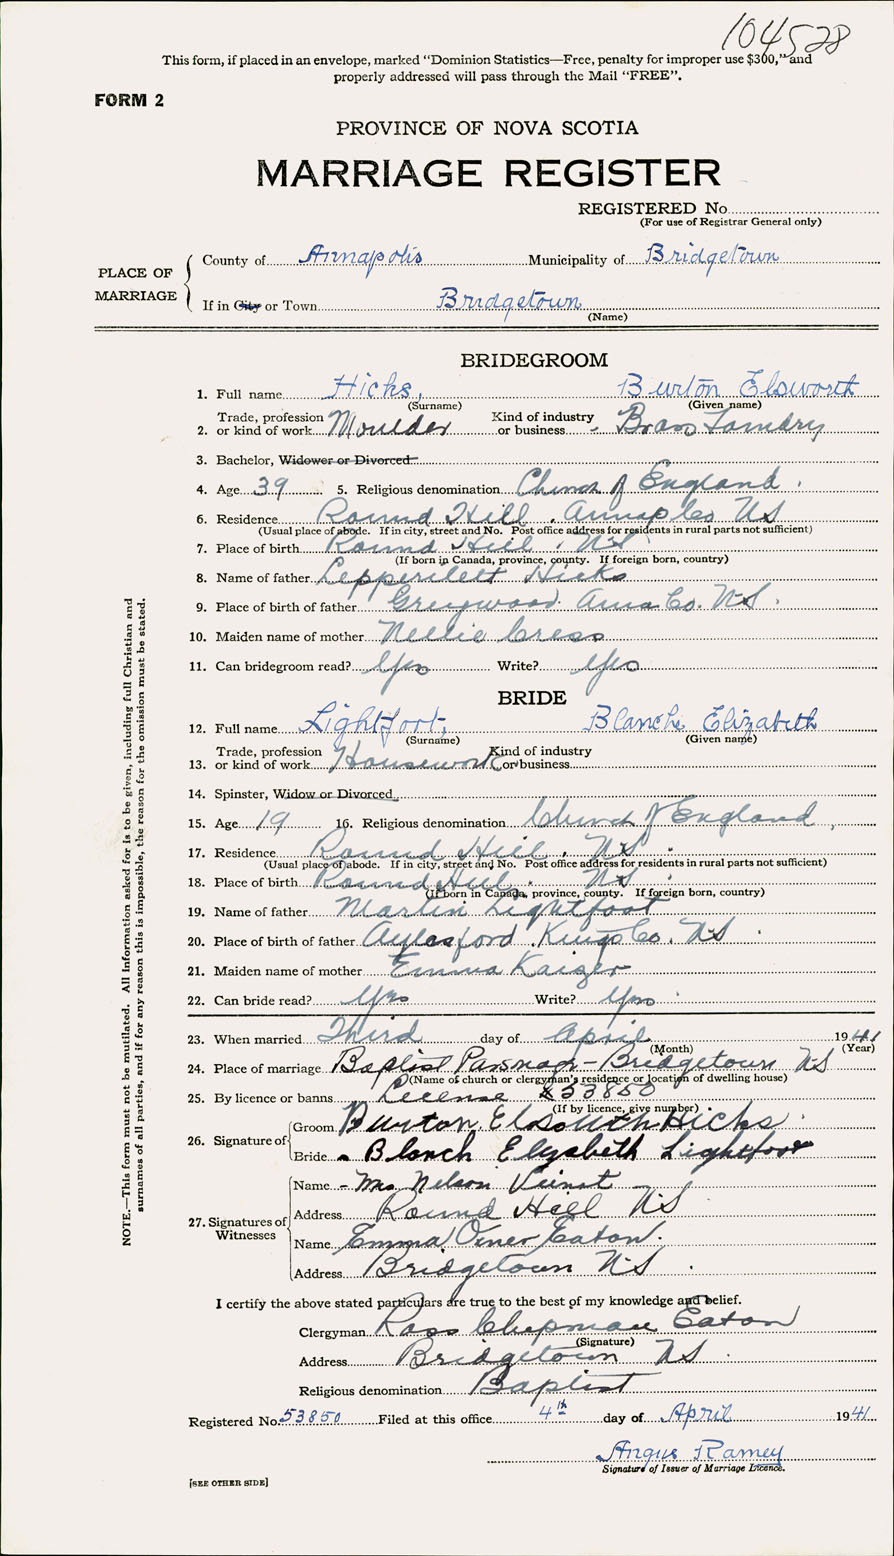 104528
This form, if placed in an envelope, marked "Dominion Statistics—Free, penalty for improper use $300," and
properly addressed will pass through the Mail "FREE".
FORM 2
PROVINCE OF NOVA SCOTIA
MARRIAGE REGISTER
REGISTERED No.
(For use of Registrar General only)
PLACE OF MARRIAGE
County of Annapolis Municipality of Bridgetown
If in City or Town Bridgetown
(Name)
BRIDEGROOM
1. Full name Hicks, Burton Elsworth
(Surname) (Given name)
2. Trade, profession or kind of work Moulder Kind of industry or business - Brass Foundry
3. Bachelor, Widower or Divorced
4. Age 39 5. Religious denomination Church of England
6. Residence Round Hill. Annap Co NS
(Usual place of abode. If in city, street and No. Post office address for residents in rural parts not sufficient)
7. Place of birth Round Hill, NS
(If born in Canada, province, county. If foreign born, country)
8. Name of father Hicks
9. Place of birth of father Greywood Anna Co. NS.
10. Maiden name of mother Nellie Cress
11. Can bridegroom read? Yes Write? Yes
BRIDE
12. Full name Lightfoot, Blanche Elizabeth
(Surname) (Given name)
13. Trade, profession or kind of work Housework Kind of industry or business
14. Spinster, Widow or Divorced
15. Age 19 16. Religious denomination Church of England,
17. Residence Round Hill. NS
(Usual place of abode. If in city, street and No. Post office address for residents in rural parts not sufficient)
18. Place of birth Round Hill. NS
(If born in Canada, province, county. If foreign born, country)
19. Name of father Martin Lightfoot
20. Place of birth of father Aylesford Kings Co. NS
21. Maiden name of mother Emma Kaizer
22. Can bride read? Yes Write? Yes
23. When married Third day of April 1941
(Month) (Year)
24. Place of marriage Baptist Parsonage - Bridgetown NS
(Name of church or clergyman's residence or location of dwelling house)
25. By licence or banns License 53850
(If by licence, give number)
26. Signature of
Groom Burton Elsouth Hicks
Bride Blanch Elyzabeth Lightfoot
27. Signatures of Witnesses
Name - Mrs Nelson Veinot
Address Round Hill NS
Name Emma Eaton.
Address Bridgetown NS.
I certify the above stated particulars are true to the best of my knowledge and belief.
Clergyman Ross Chipman Eaton
(Signature)
Address Bridgetown NS.
Religious denomination Baptist
Registered No. 53850 Filed at this office 4th day of April 1941
Angus Ramey
Signature of Issuer of Marriage Licence.
[SEE OTHER SIDE]
NOTE.—This form must not be mutilated. All Information asked for is to be given, including full Christian and
surnames of all parties, and if for any reason this is impossible, the reason for the omission must be stated.